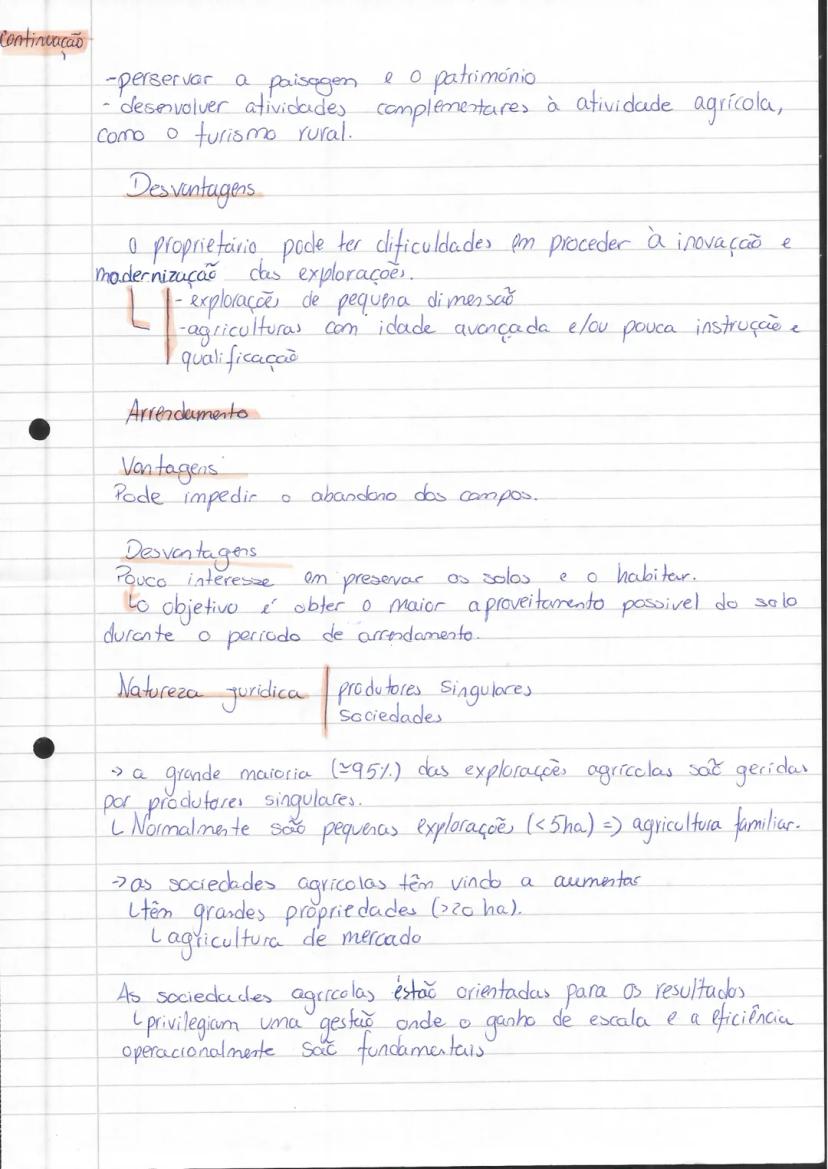 Continuação
-perservar a paisagem e o património
- desenvolver atividades complementares à atividade agrícola,
como o turismo rural.
Desvantagens
O proprietário pode ter dificuldades em proceder à inovação e
modernização das explorações.
- explorações de pequena dimensão
-agriculturas com idade avançada e/ou pouca instrução e
qualificação
Arrendamento
Vantagens
Pode impedir o abandono dos campos.
Desvantagens
Pouco interesse em preservar os solos e o habitar.
O objetivo é obter o maior aproveitamento possivel do solo
durante o periodo de arrendamento.
Natureza juridica | produtores singulares
sociedades
→ a grande maioria (≃95%) das explorações agrícolas são geridas
por produtores singulares.
↳ Normalmente são pequenas explorações (<5ha) => agricultura familiar.
→ as sociedades agrícolas têm vindo a aumentar
↳ têm grandes propriedades (>20 ha).
↳ agricultura de mercado
As sociedades agrícolas estão orientadas para os resultados
↳ privilegiam uma gestão onde o ganho de escala e a eficiência
operacionalmente são fundamentais